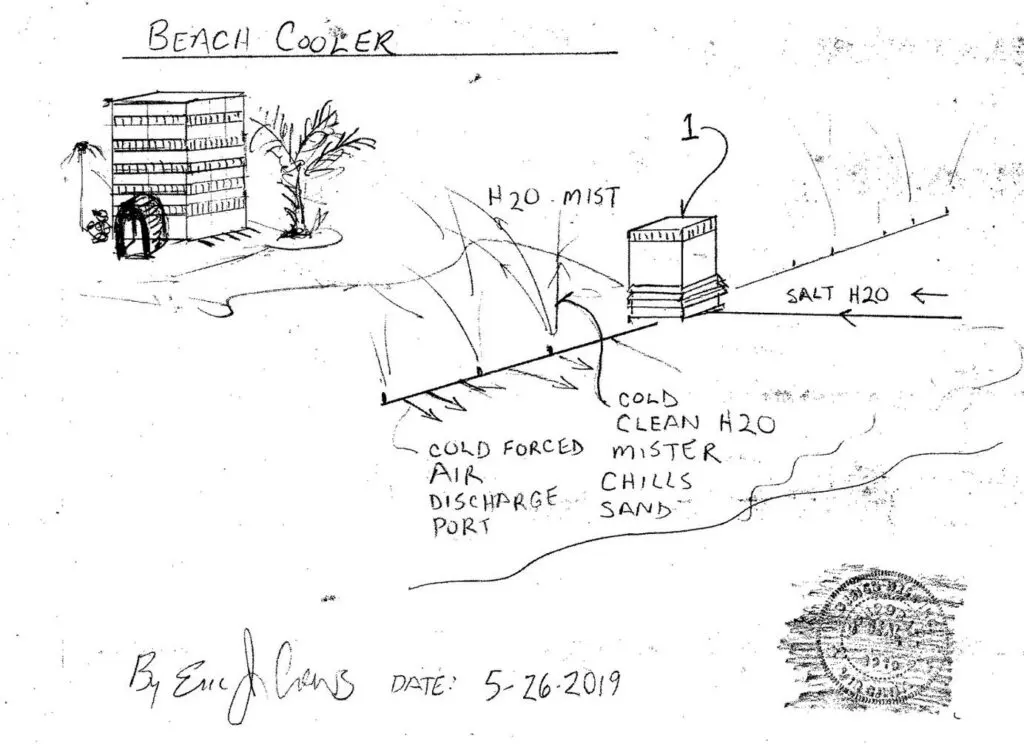 BEACH COOLER
1
H2O MIST
SALT H2O
COLD
CLEAN H2O
MISTER
CHILLS
SAND
COLD FORCED
AIR
DISCHARGE
PORT
By Eric J.
DATE: 5-26-2019